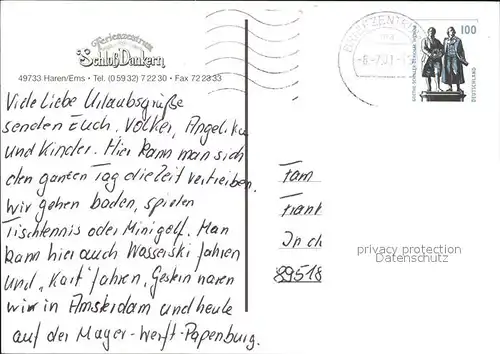 Ferienzentrum
Schloß Dankern
49733 Haren/Ems • Tel. (0 59 32) 7 22 30 • Fax 72 28 33
Viele Liebe Urlaubsgrüße
senden Euch, Volker, Angelika
und Kinder. Hier kann man sich
den ganzen Tag die Zeit vertreiben.
Wir gehen baden, spielen
Tischtennis oder Minigolf. Man
kann hier auch Wasserski fahren
und „Kart" fahren, Gestern waren
wir in Amsterdam und heute
auf der Mayer-Werft-Papenburg.
BRIEFZENTRUM
100
DEUTSCHLAND
Fam
Frank
In d
89518
privacy protection
Datenschutz